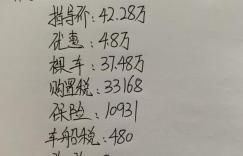 指导价:42.28万
优惠:4.8万
裸车:37.48万
购置税:33168
保险:10931
车船税:480